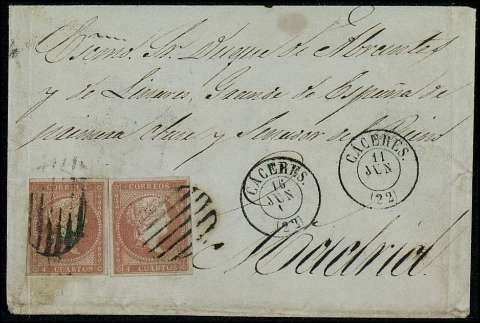 Excmo. Sr. Duque de Abrantes
y de Linares, Grande de España de
primera clase y Senador del Reino
Madrid.
CACERES.
16
JUN
(22)
CACERES.
11
JUN
(22)
CORREOS
4 CUARTOS
CORREOS
4 CUARTOS